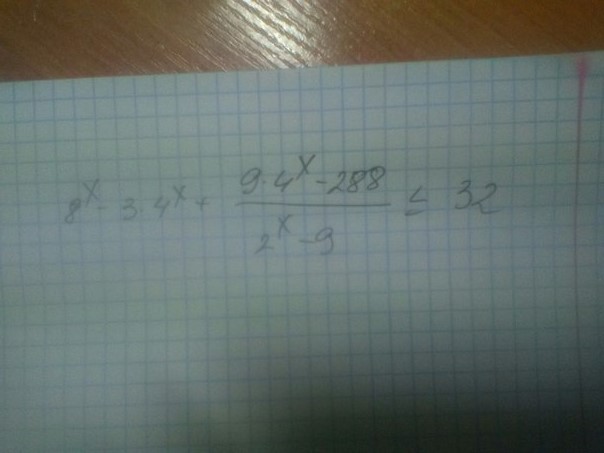 8^x - 3·4^x + (9·4^x - 288)/(2^x - 9) ≤ 32